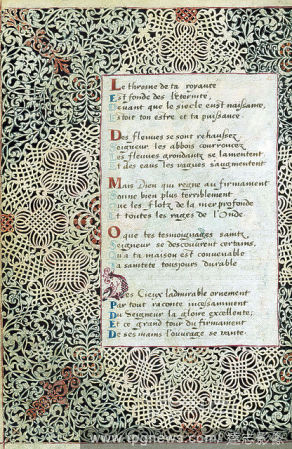 Le throsne de ta royauté
Est fondé des l'eternité,
Deuant que le siecle eust naissance,
Estoit ton estre et ta puissance.
Des fleuues se sont rehaussez
Seigneur les abbois courroucez
Les fleuues grondants se lamentent
Et des eaus les vagues s'augmentent
Mais Dieu qui regne au firmament
Tonne bien plus terriblement
Que les flotz de la mer profonde
Et toutes les rages de l'Onde
O que tes tesmoignages saintz
Seigneur se descouurent certains,
Qu'a ta maison est conuenable
La saintete tousjours durable
Des Cieux l'admirable ornement
Par tout raconte incessamment
Du Seigneur la gloire excellente;
Et ce grand tour du firmament
De ses mains l'ouurage se vante.
www.tpgnews.com